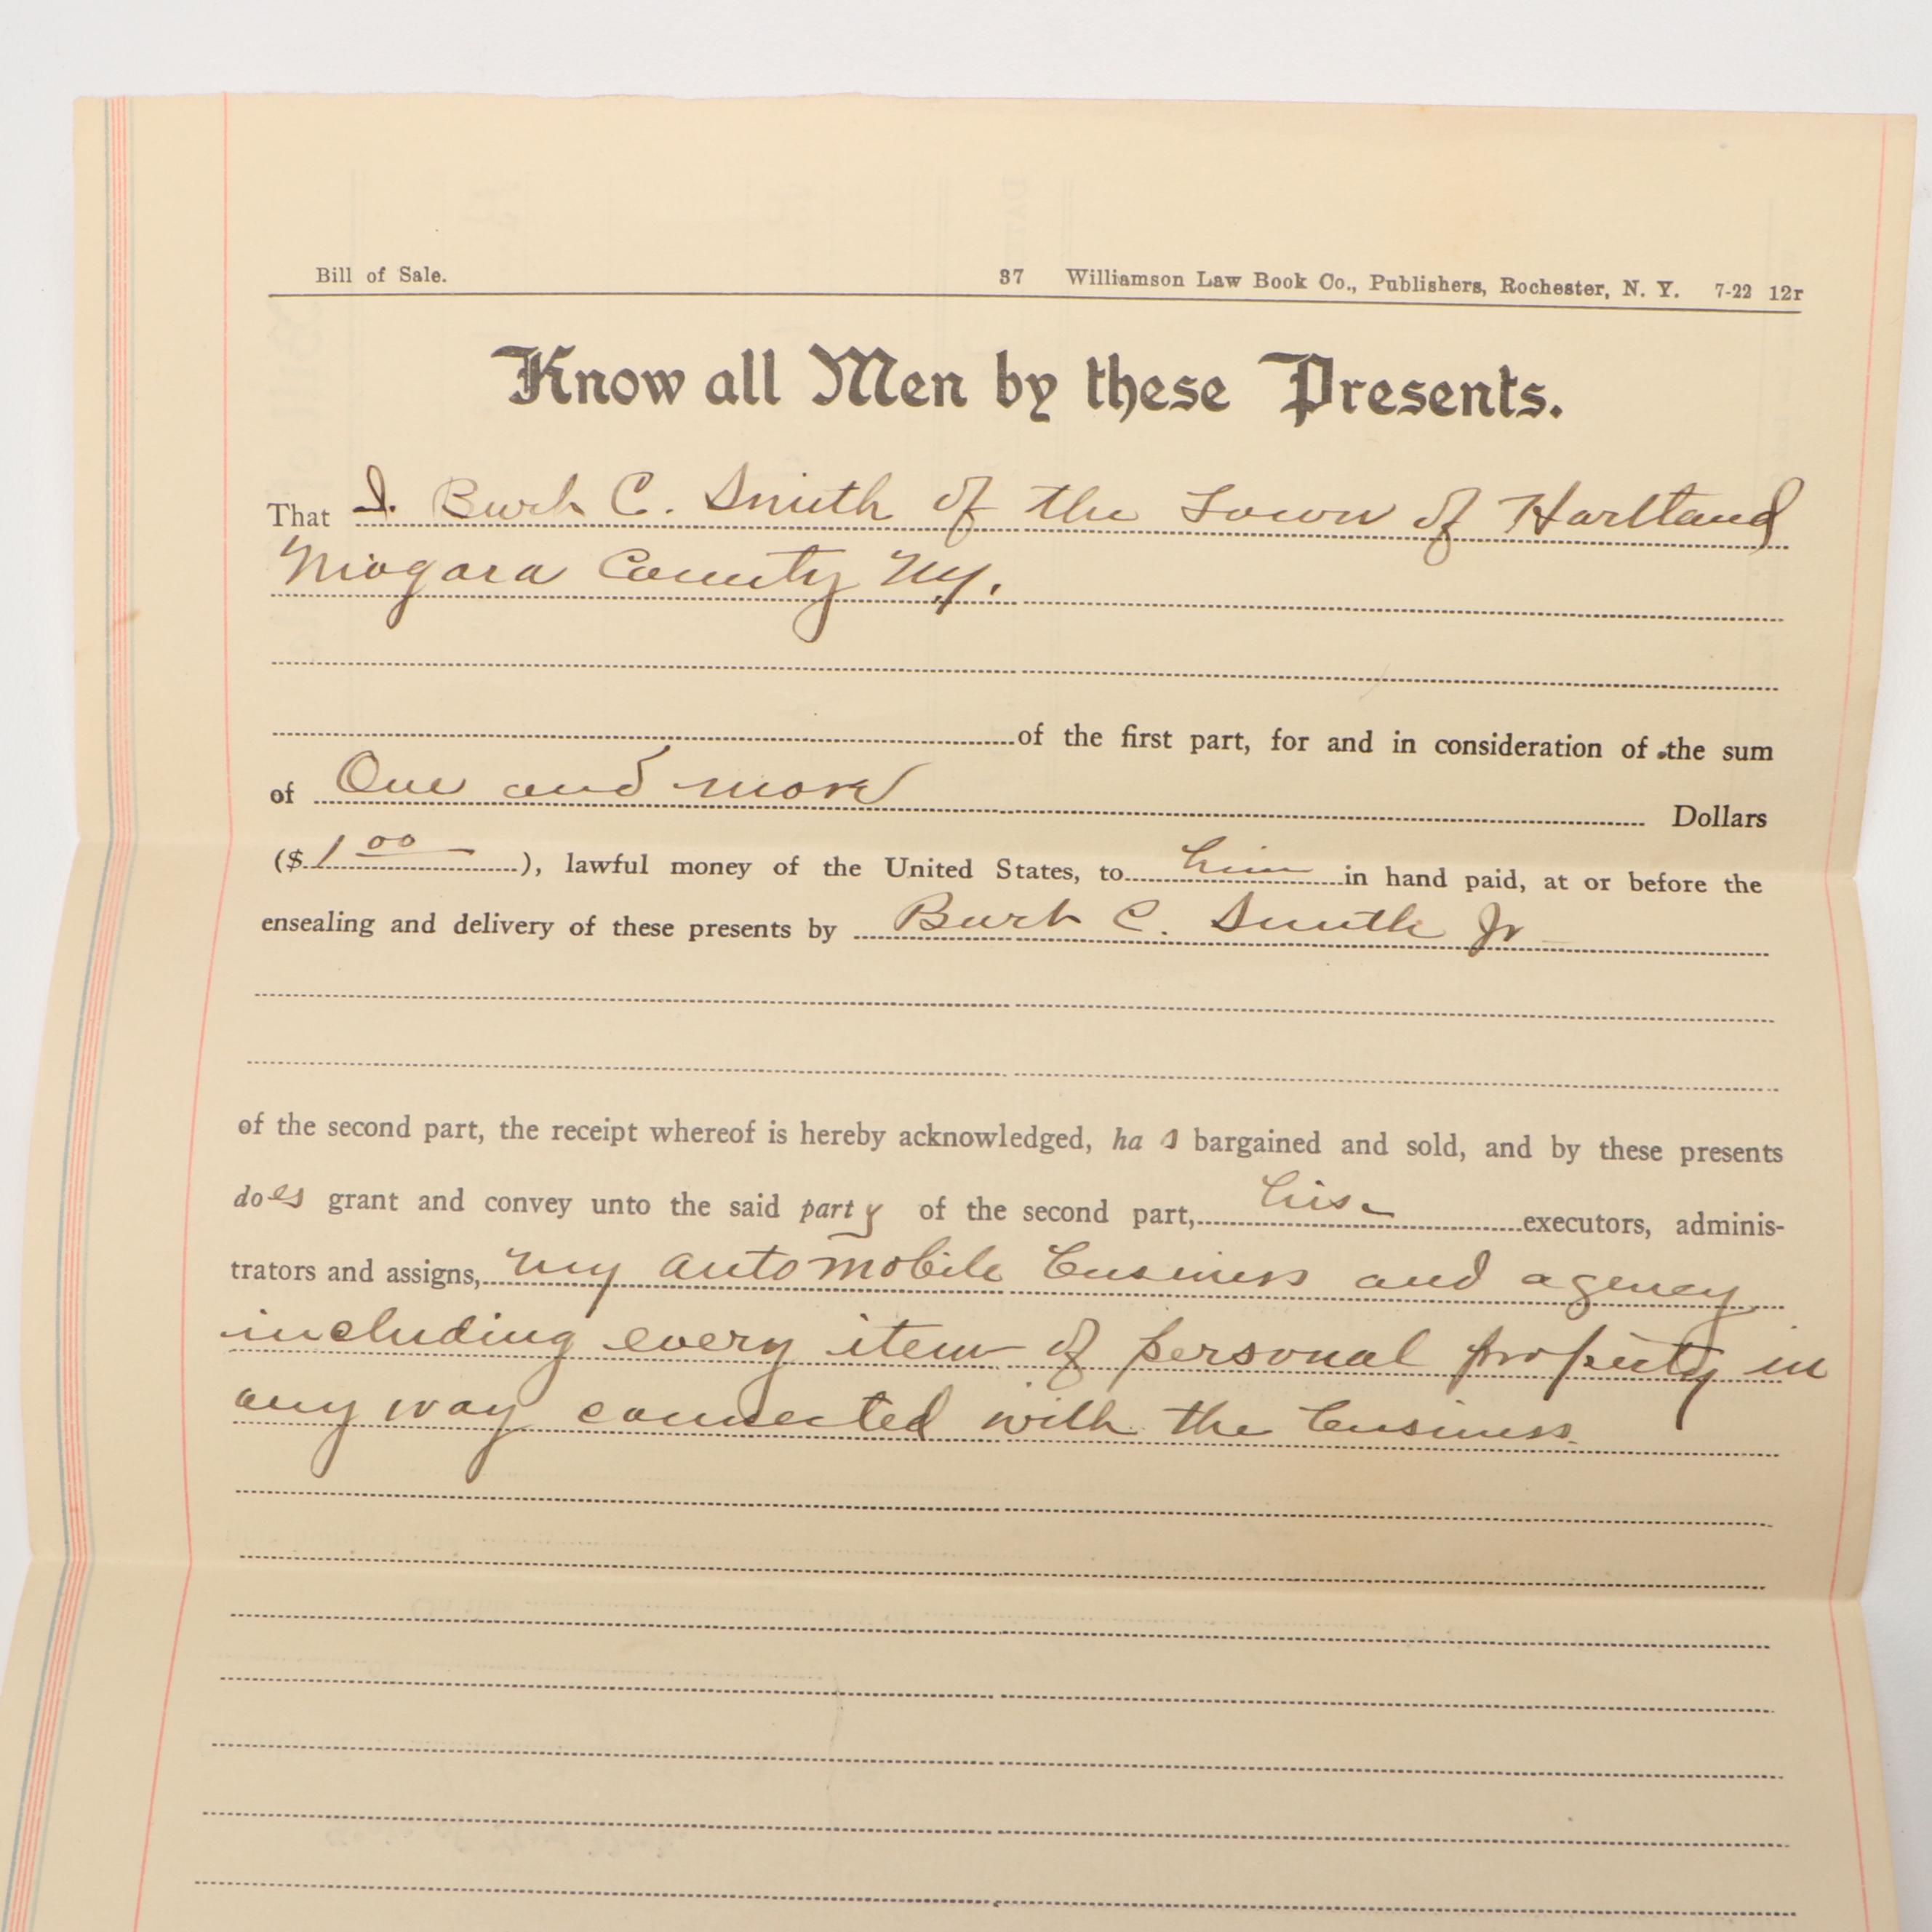 Bill of Sale. 37 Williamson Law Book Co., Publishers, Rochester, N. Y. 7-22 12r
Know all Men by these Presents.
That I. Burt C. Smith of the Town of Hartland
Niagara County NY.
of the first part, for and in consideration of the sum
of One and more Dollars
($ 1 00 ), lawful money of the United States, to him in hand paid, at or before the
ensealing and delivery of these presents by Burt C. Smith Jr
of the second part, the receipt whereof is hereby acknowledged, ha s bargained and sold, and by these presents
does grant and convey unto the said party of the second part, his executors, adminis-
trators and assigns, my automobile business and agency
including every item of personal property in
any way connected with the business